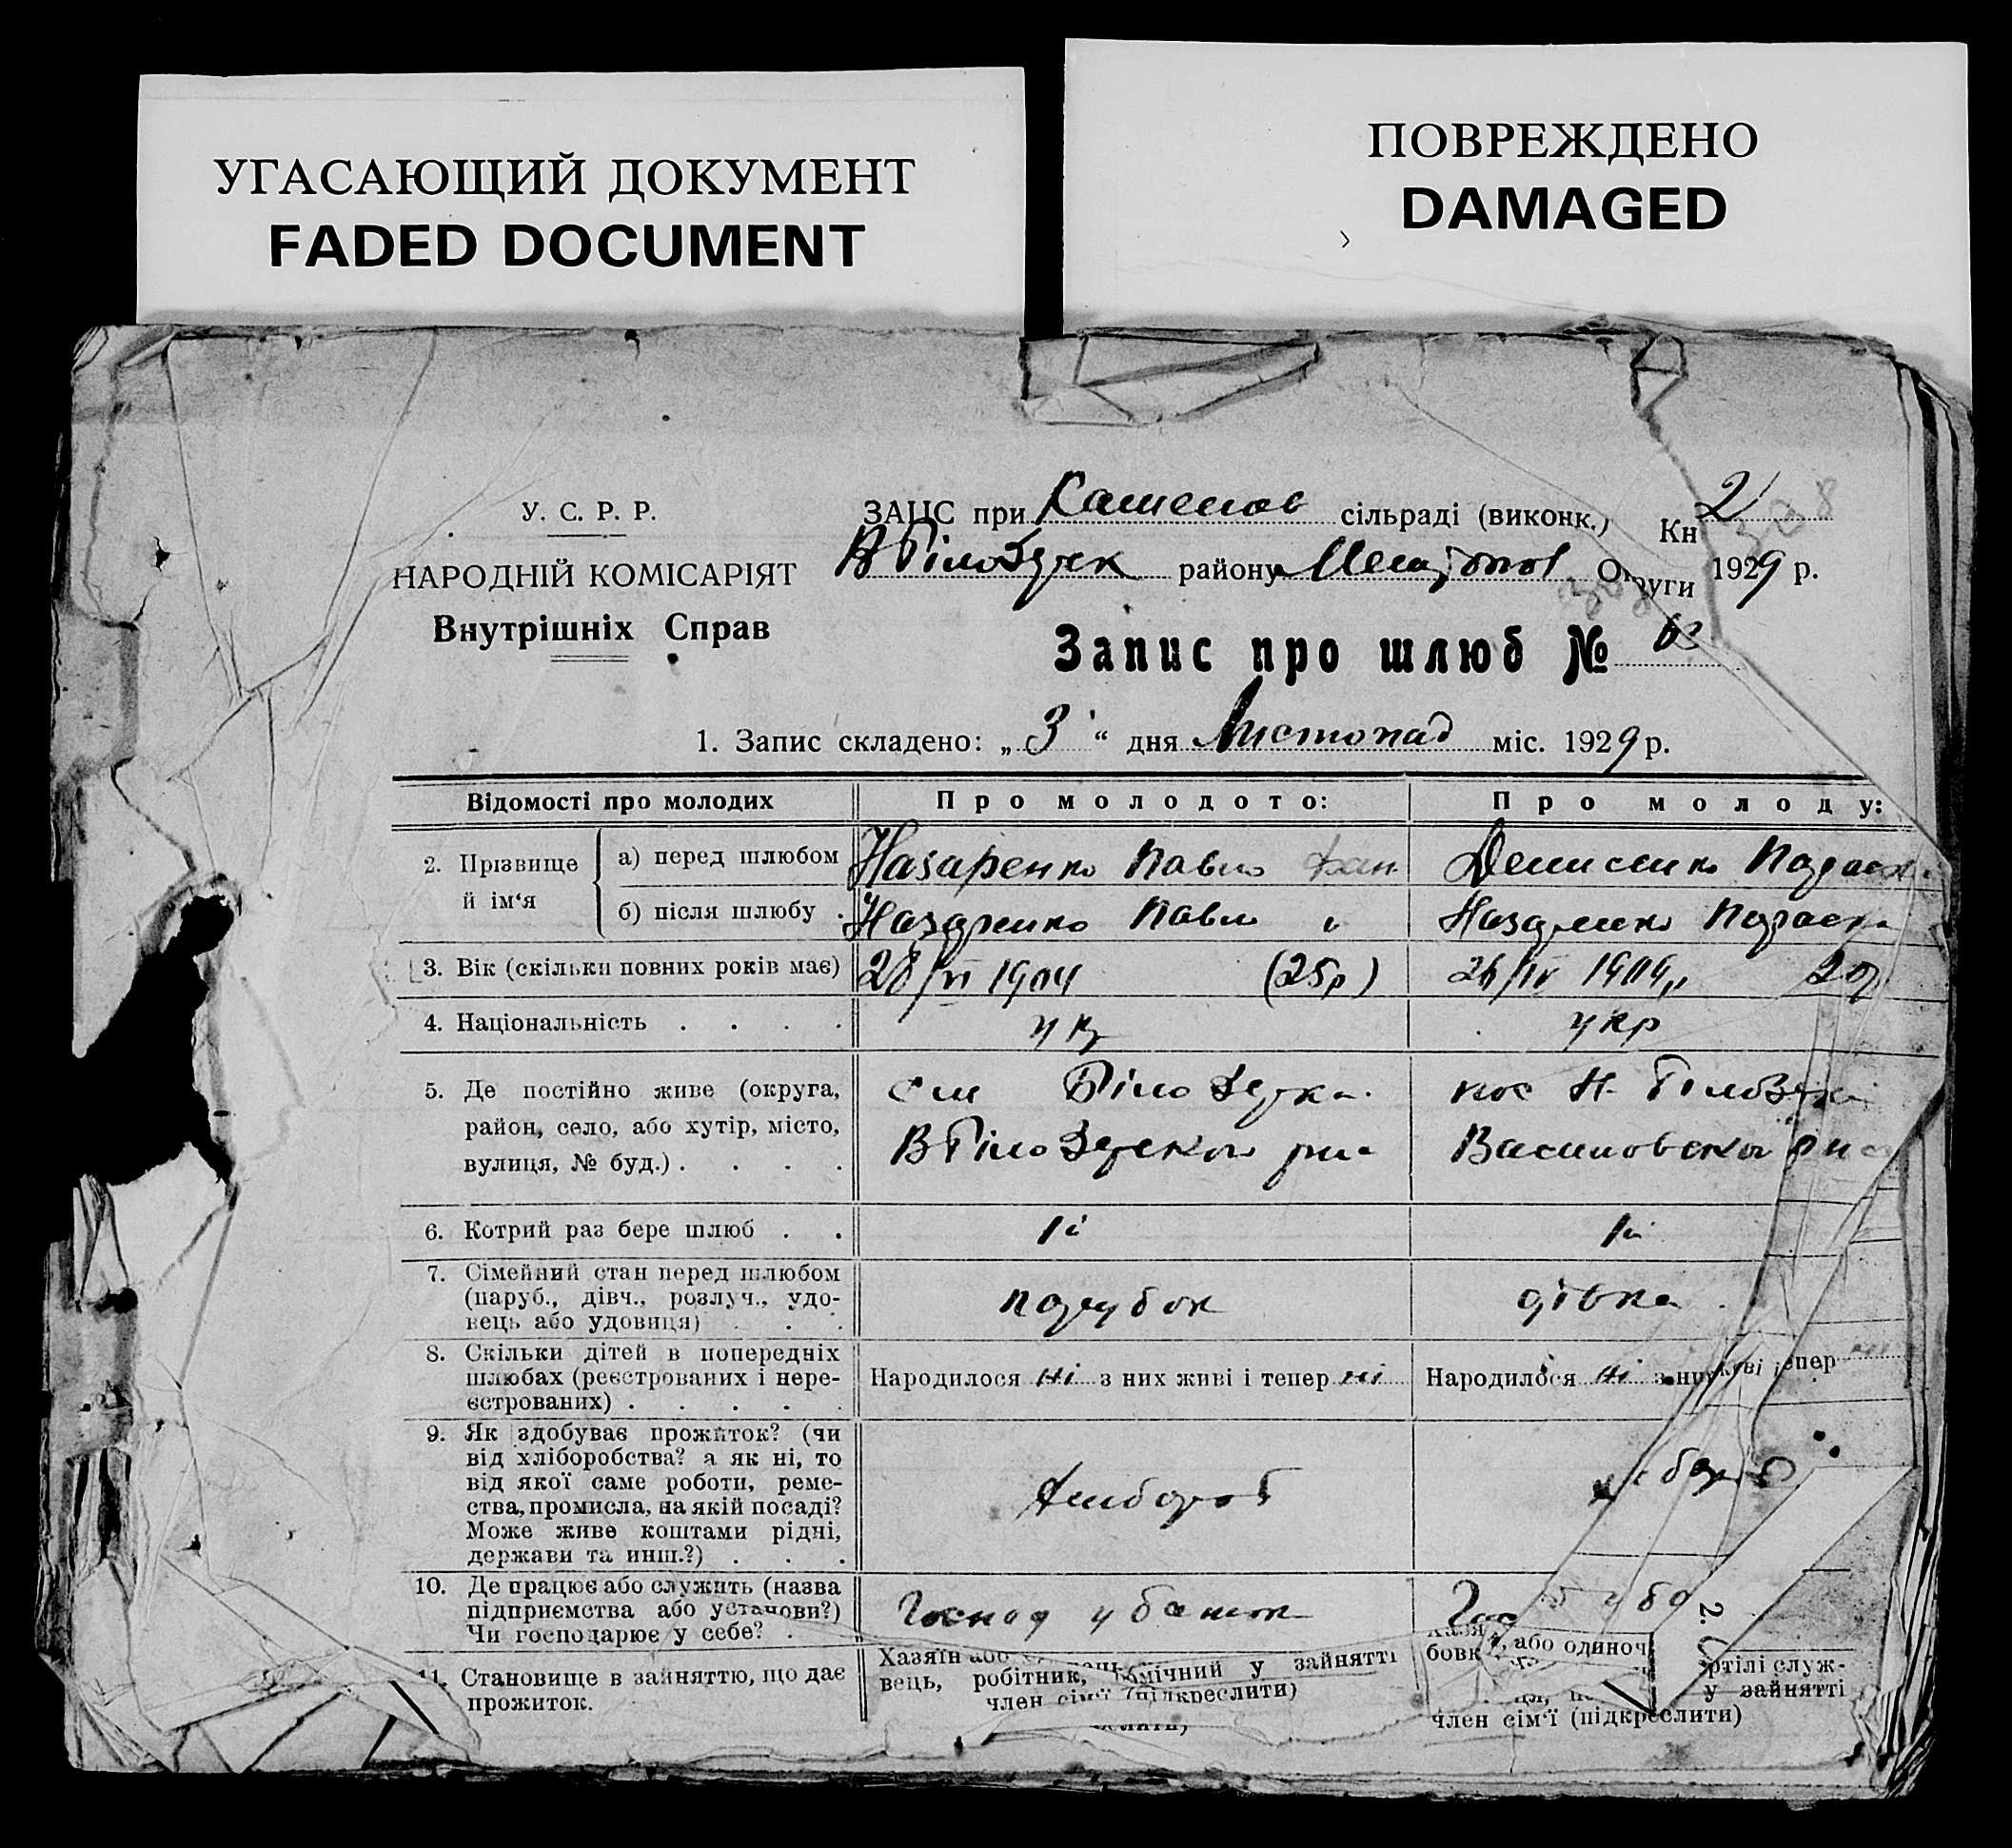 УГАСАЮЩИЙ ДОКУМЕНТ
FADED DOCUMENT
ПОВРЕЖДЕНО
DAMAGED
У. С. Р. Р.
НАРОДНІЙ КОМІСАРІЯТ
Внутрішніх Справ
ЗАЦС при сільраді (виконк.) Кн 2
В Білозерск району Мелітопол Округи 1929 р.
Запис про шлюб №
1. Запис складено: „ 3 “ дня Листопад міс. 1929 р.
Відомості про молодих
Про молодого:
Про молоду:
2. Прізвище й ім‘я
а) перед шлюбом
Назаренко Павло
Денисенко Параск
б) після шлюбу
Назаренко Павло
Назаренко Параска
3. Вік (скільки повних років має)
28/VI 1904 (25р)
26/IV 1909 20р
4. Національність
укр
укр
5. Де постійно живе (округа,
район, село, або хутір, місто,
вулиця, № буд.)
Білозерка
В Білозерской
пос Н. Білозерка
Василовской
6. Котрий раз бере шлюб
1й
1й
7. Сімейний стан перед шлюбом
(паруб., дівч., розлуч., удо-
вець або удовиця)
парубок
дівка
8. Скільки дітей в попередніх
шлюбах (реєстрованих і нере-
єстрованих)
Народилося ні з них живі і тепер ні
Народилося ні з них живі і тепер
9. Як здобуває прожиток? (чи
від хліборобства? а як ні, то
від якої саме роботи, реме-
ства, промисла, на якій посаді?
Може живе коштами рідні,
держави та инш.?)
хлібороб
10. Де працює або служить (назва
підприємства або установи?)
Чи господарює у себе?
Господ у батьк
11. Становище в зайняттю, що дає
прожиток.
Хазяїн або
вець, робітник, помічний у зайнятті
член сім‘ї (підкреслити)
або одиноч
ртілі служ-
бовк
у зайнятті
член сім‘ї (підкреслити)